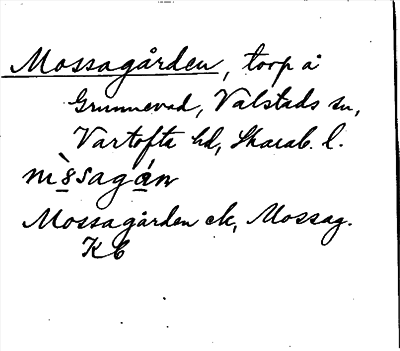 Mossagården, torp å
Grunnevad, Valstads sn,
Vartofta hd, Skarab. l.
Mossagården ek, Mossag.